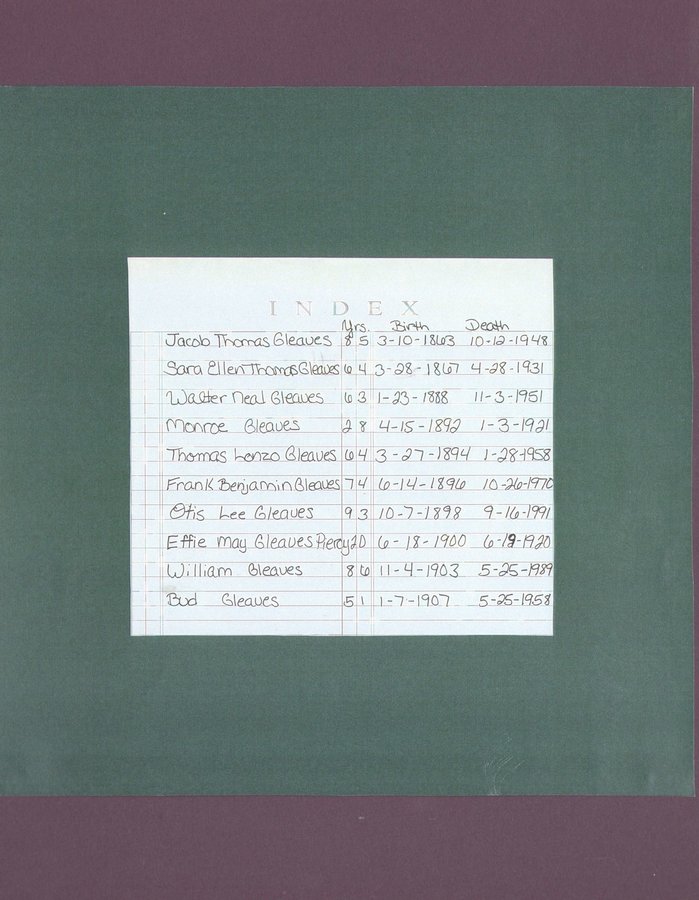 INDEX
Yrs. Birth Death
Jacob Thomas Gleaves 85 3-10-1863 10-12-1948
Sara Ellen Thomas Gleaves 64 3-28-1867 4-28-1931
Walter Neal Gleaves 63 1-23-1888 11-3-1951
Monroe Gleaves 28 4-15-1892 1-3-1921
Thomas Lonzo Gleaves 64 3-27-1894 1-28-1958
Frank Benjamin Gleaves 74 6-14-1896 10-26-1970
Otis Lee Gleaves 93 10-7-1898 9-16-1991
Effie May Gleaves Piercy 20 6-18-1900 6-19-1920
William Gleaves 86 11-4-1903 5-25-1989
Bud Gleaves 51 1-7-1907 5-25-1958